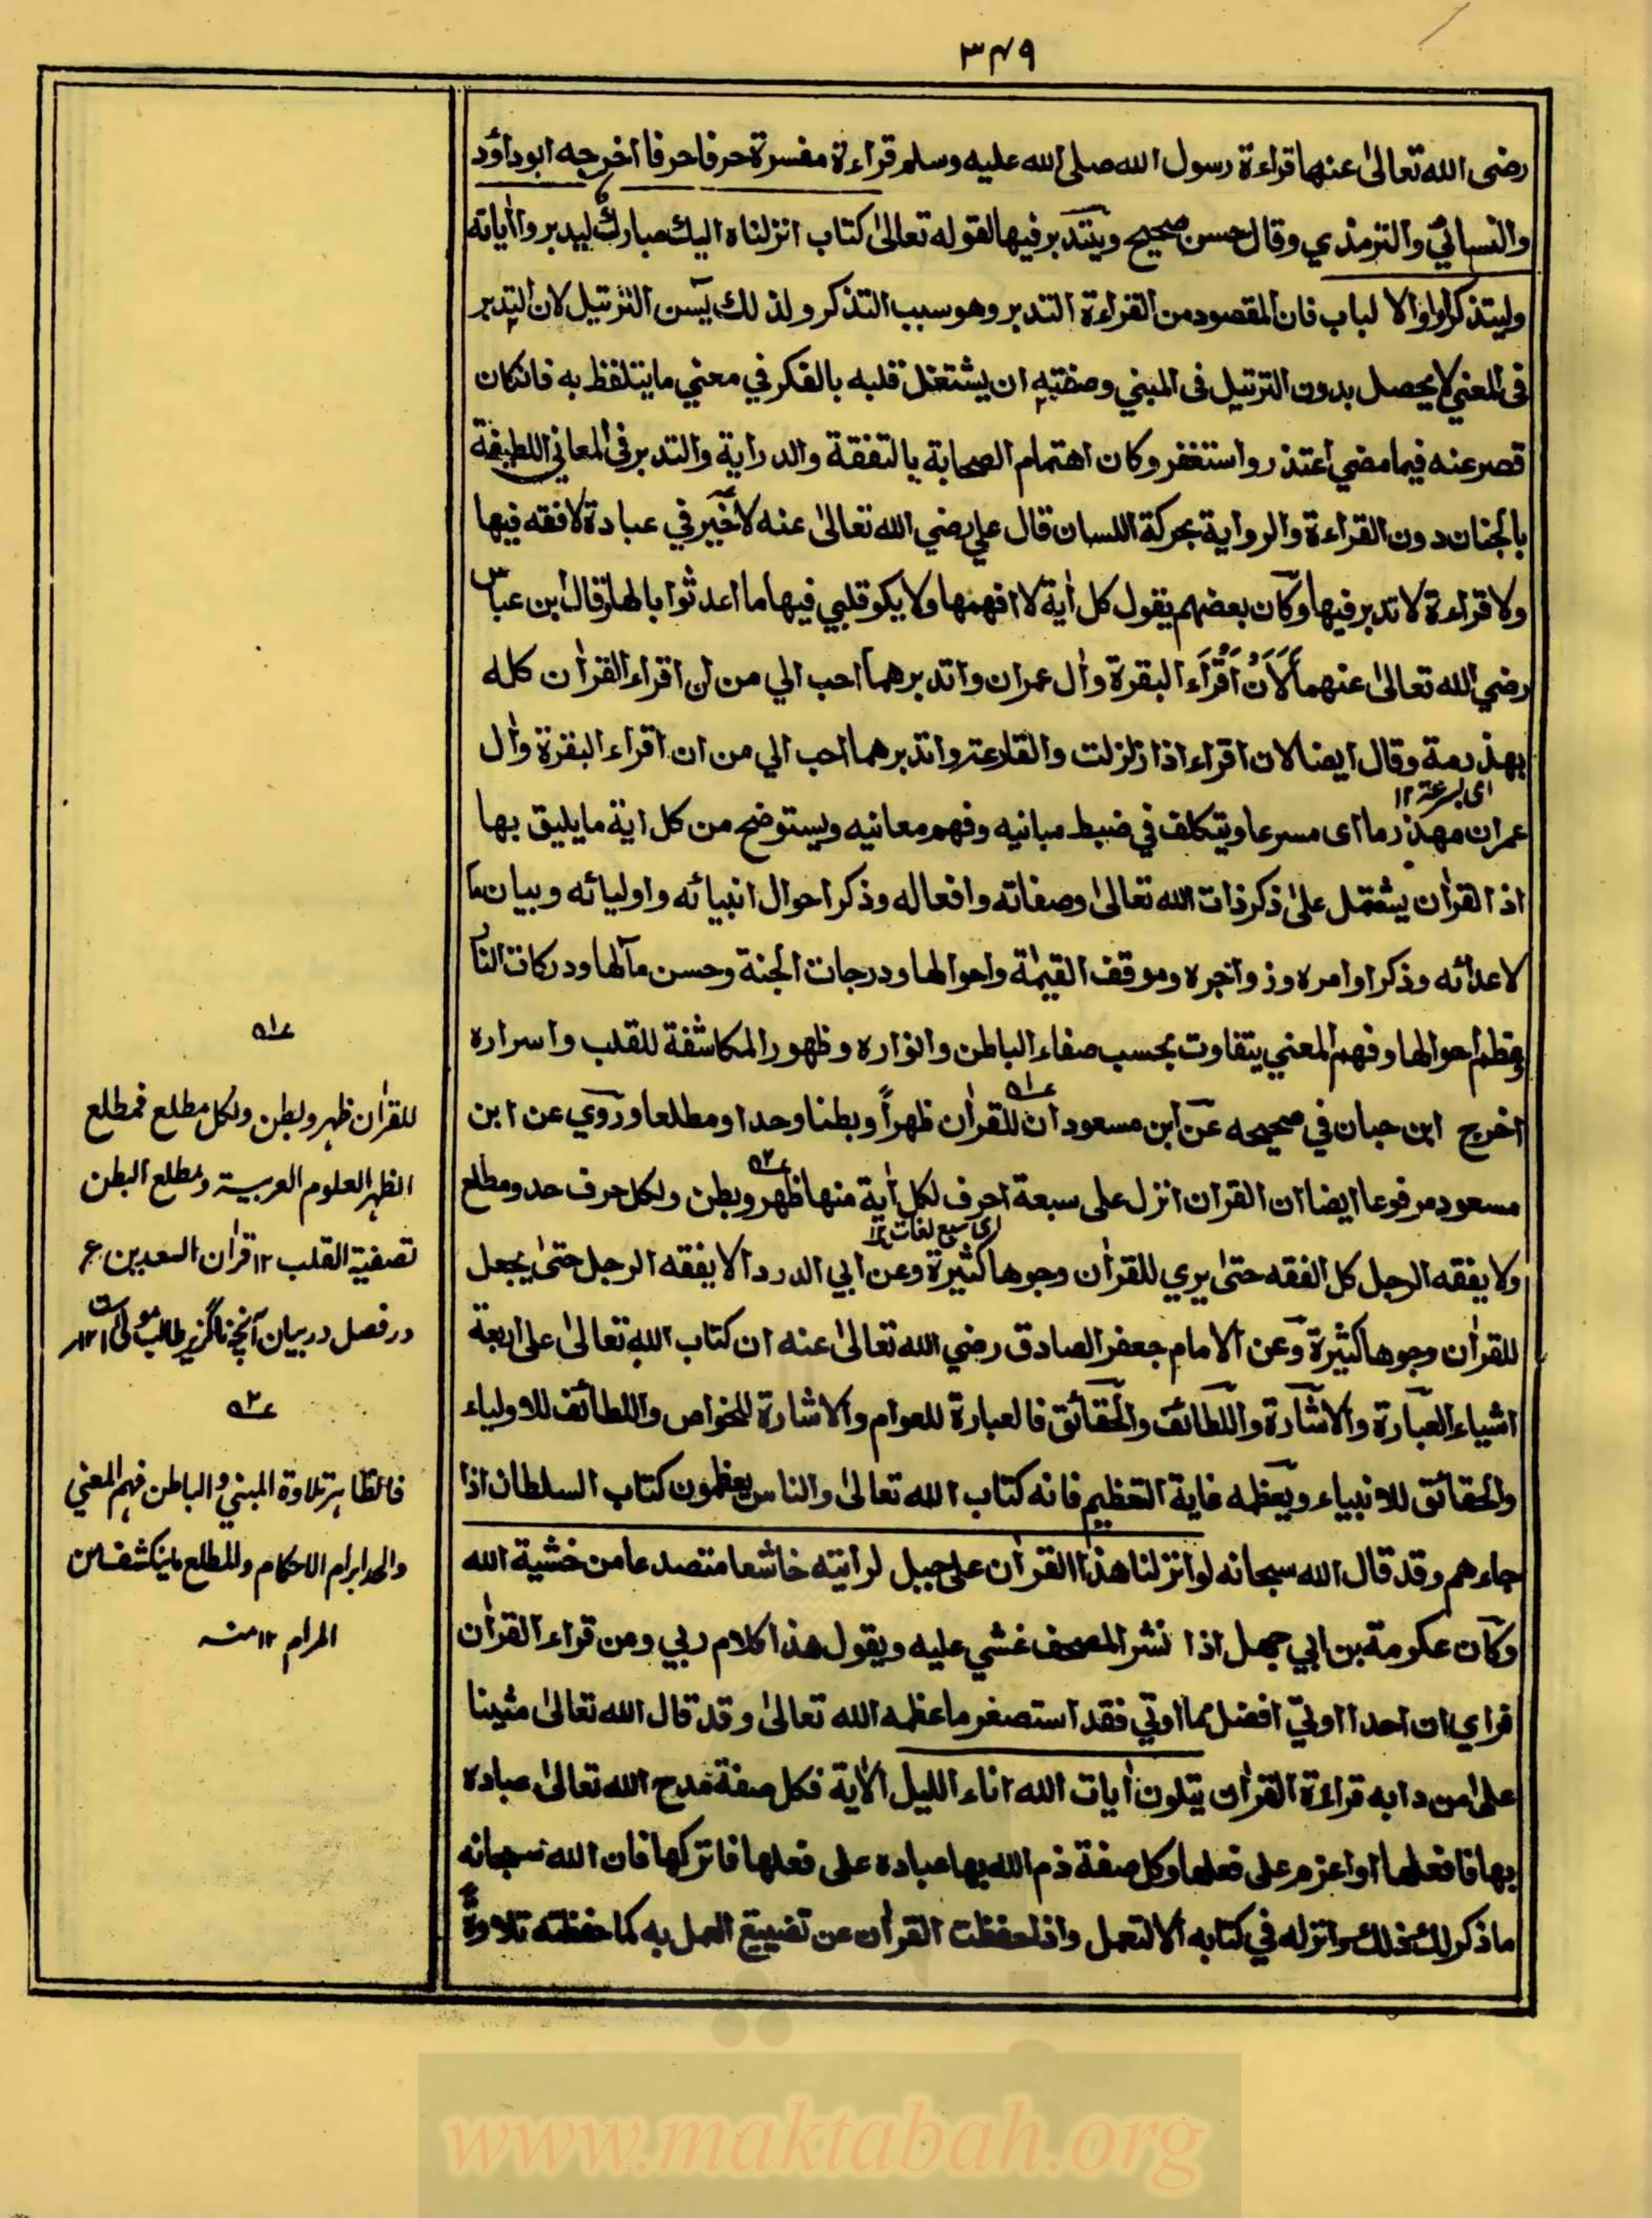 ٣٤٩
رضى الله تعالىٰ عنها قراءة رسول الله صلى الله عليه وسلم قراءة مفسرة حرفا حرفا اخرجه ابوداؤد
والنسائي والترمذي وقال حسن صحيح ويتدبر فيها لقوله تعالىٰ كتاب انزلناه اليك مبارك ليدبروا اٰياته
وليتذكر اولوا الالباب فان المقصود من القراءة التدبر وهو سبب التذكر ولذلك يسن الترتيل لان التدبر
فى المعني لا يحصل بدون الترتيل فى المبني وصفته ان يشتغل قلبه بالفكر في معني ما يتلفظ به فانكان
قصر عنه فيما مضي اعتذر واستغفر وكان اهتمام الصحابة بالتفقة والدراية والتدبر فى المعاني اللطيفة
بالجنان دون القراءة والرواية بحركة اللسان قال علي رضي الله تعالىٰ عنه لا خير في عبادة لا فقه فيها
ولا قراءة لا تدبر فيها وكان بعضهم يقول كل اٰية لا افهمها ولا يكو قلبي فيها ما اعد ثوابا لها وقال ابن عباس
رضي الله تعالىٰ عنهما لَاَنْ اَقْرَاَءَ البقرة واٰل عمران واتدبرهما احب الي من ان اقراء القراٰن كله
بهذرمة وقال ايضا لان اقراء اذا زلزلت والقارعة واتدبرهما احب الي من ان اقراء البقرة واٰل
اى بسرعة ١٢
عمران مهذرما اى مسرعا ويتكلف في ضبط مبانيه وفهم معانيه ويستوضح من كل اية ما يليق بها
اذ القراٰن يشتمل علىٰ ذكر ذات الله تعالىٰ وصفاته وافعاله وذكر احوال انبيائه واوليائه وبيان ما
لاعدائه وذكر اوامره وزواجره وموقف القيٰمة واحوالها ودرجات الجنة وحسن مآلها ودركات النار
وفظم احوالها وفهم المعني يتفاوت بحسب صفاء الباطن وانواره وظهور المكاشفة للقلب واسراره
اخرج ابن حبان في صحيحه عن ابن مسعود ان للقراٰن ظهراً وبطنا وحدا ومطلعا وروي عن ابن
مسعود مرفوعا ايضا ان القران انزل على سبعة احرف لكل اٰية منها ظهر وبطن ولكل حرف حد ومطلع
اى سبع لغات ١٢
ولا يفقه الرجل كل الفقه حتىٰ يري للقراٰن وجوها كثيرة وعن ابي الدرداء لا يفقه الرجل حتىٰ يجعل
للقراٰن وجوها كثيرة وعن الامام جعفر الصادق رضي الله تعالىٰ عنه ان كتاب الله تعالىٰ علىٰ اربعة
اشياء العبارة والاشارة واللطائف والحقائق فالعبارة للعوام والاشارة للخواص واللطائف للاولياء
والحقائق للانبياء ويعظمه غاية التعظيم فانه كتاب الله تعالىٰ والناس يعظمون كتاب السلطان اذا
جاءهم وقد قال الله سبحانه لو انزلنا هذا القراٰن على جبل لرايته خاشعا متصدعا من خشية الله
وكان عكرمة بن ابي جهل اذا نشر المصحف غشي عليه ويقول هذا كلام ربي ومن قراء القراٰن
فراي ان احدا اوتي افضل مما اوتي فقد استصغر ما عظمه الله تعالىٰ وقد قال الله تعالىٰ مثينا
علىٰ من دابه قراءة القراٰن يتلون اٰيات الله اناء الليل الاٰية فكل صفة مدح الله تعالىٰ عباده
بها فافعلها او اعزم على فعلها وكل صفة ذم الله بها عباده على فعلها فاتركها فان الله سبحانه
ما ذكر لك ذلك وانزله في كتابه الا لتعمل واذا حفظت القراٰن عن تضييع العمل به كما حفظته تلاوة
عـه١
للقراٰن ظهر وبطن ولكل مطلع فمطلع
الظهر العلوم العربية ومطلع البطن
تصفية القلب ١٢ قراٰن السعدين
در فصل در بيان آنچه ناگزير طالب
عـه٢
فالظاهر تلاوة المبني والباطن فهم المعني
والحد ابرام الاحكام والمطلع ما ينكشف من
المرام ١٢ منه
www.maktabah.org